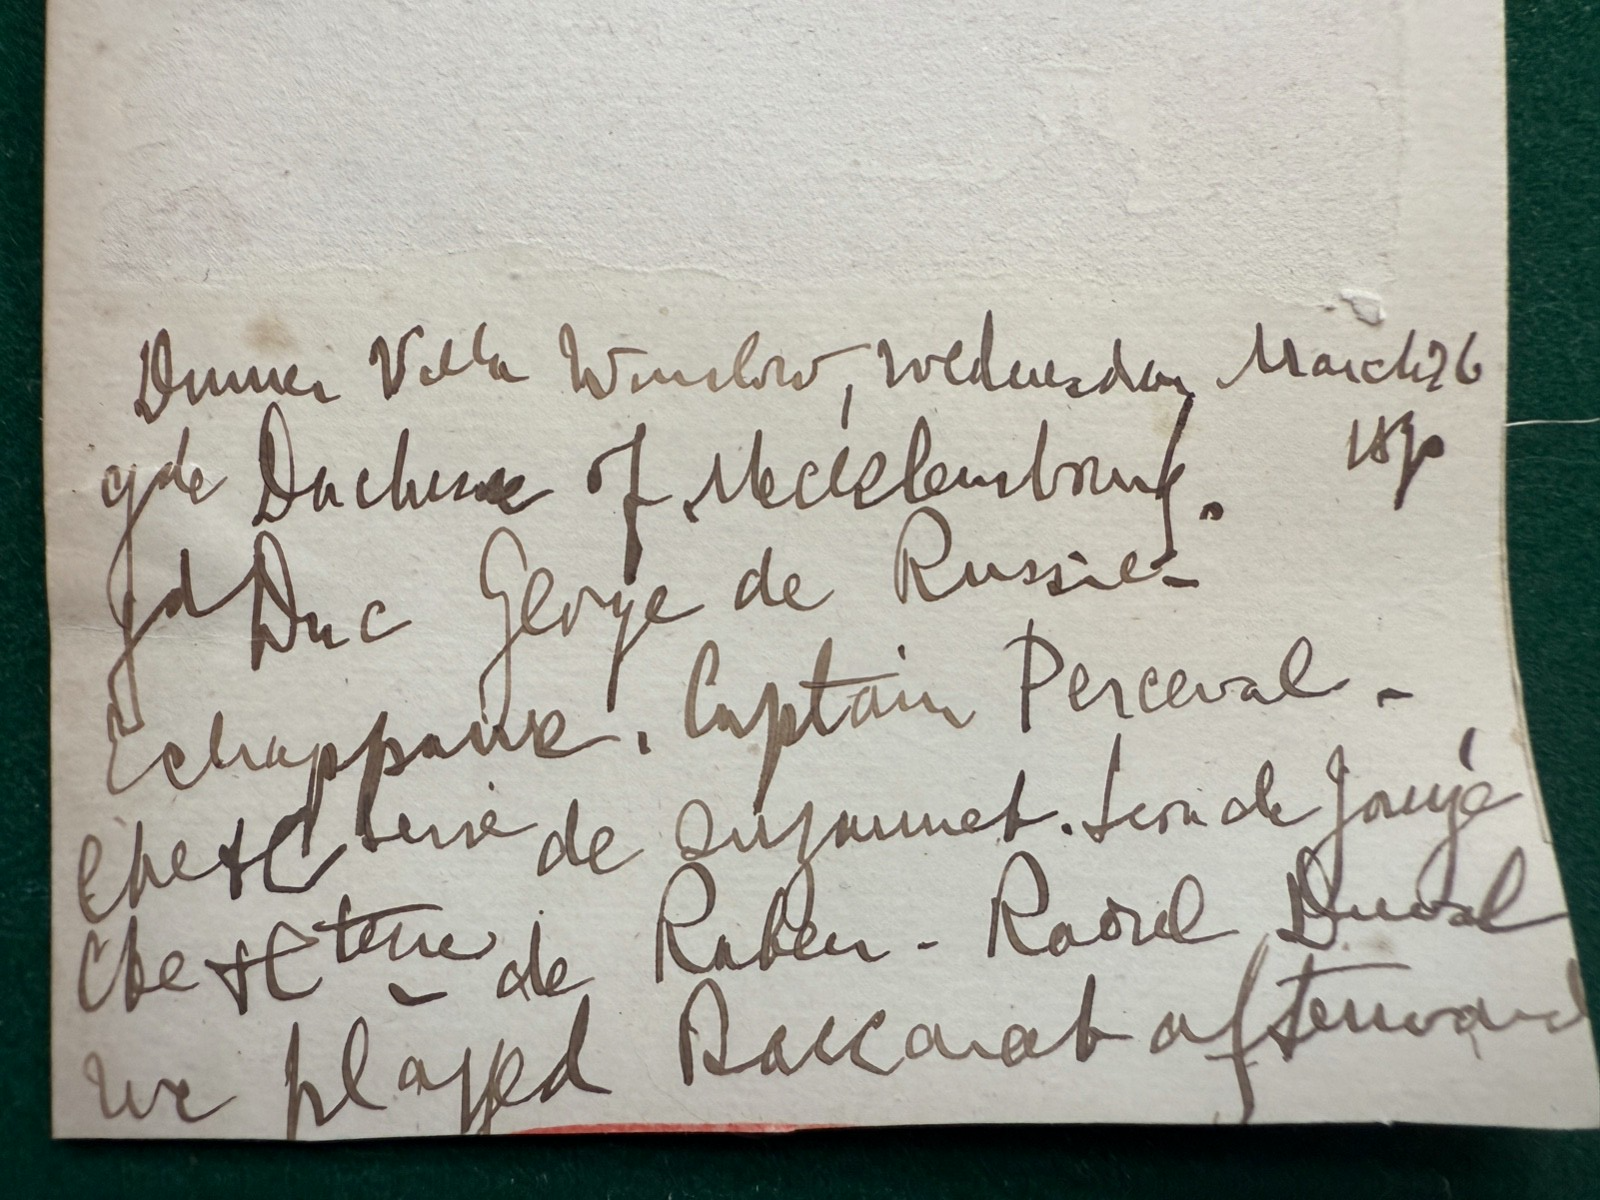 Dinner Villa Winslow, Wednesday March 26
gde Duchesse of Mecklembourg. 1890
gd Duc George de Russie -
Echappar. Captain Perceval -
Cte & Ctesse de Suzannet. Leon de Jouye
Cte & Ctesse - de Raben - Raoul Duval
we played Baccarat afterward